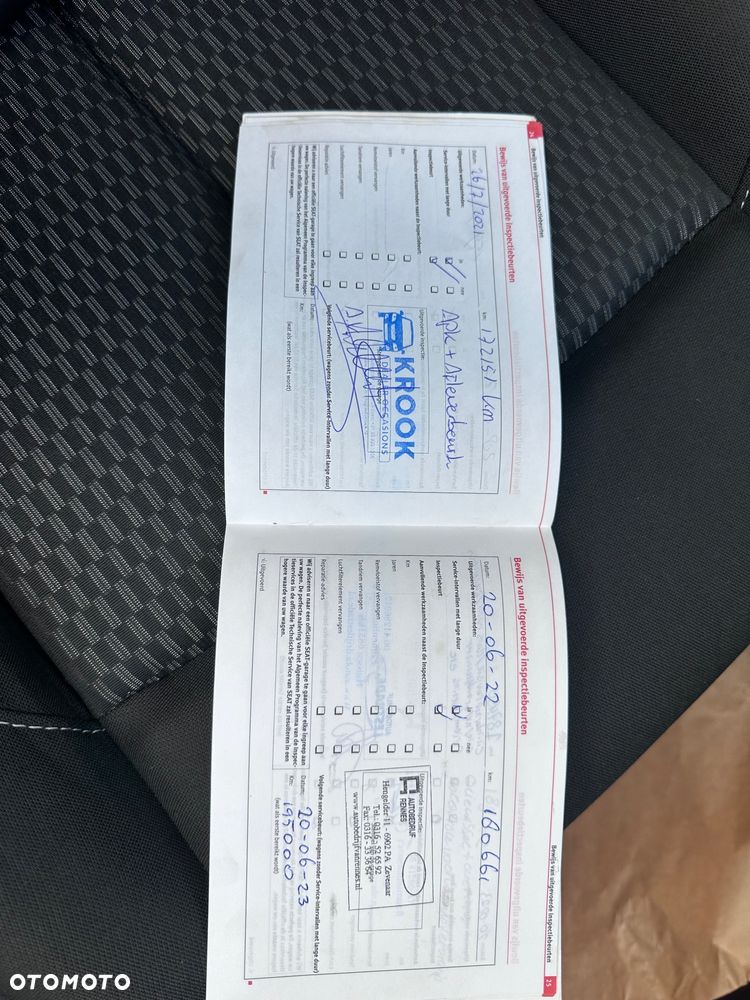 24 Bewijs van uitgevoerde inspectiebeurten
Bewijs van uitgevoerde inspectiebeurten
Datum: 26/7/2021 km: 172151 km
Uitgevoerde werkzaamheden: ja nee
Service-intervallen met lange duur
Inspectiebeurt
Aanvullende werkzaamheden naast de inspectiebeurt:
Km
Jaren
Remvloeistof vervangen
Tandriem vervangen
Luchtfilterelement vervangen
Reparatie-advies
Wij adviseren u naar een officiële SEAT-garage te gaan voor elke ingreep aan
uw wagen. De perfecte naleving van het Algemeen Programma van de Inspec-
tieservices in de officiële Technische Service van SEAT zal resulteren in een
hogere waarde van uw wagen.
√: Uitgevoerd
Apk + Afleverbeurt
Uitgevoerde inspectie:
KROOK
OCCASIONS
Volgende servicebeurt: (wagens zonder Service-intervallen met lange duur)
Datum:
Km:
(wat als eerste bereikt wordt)
Bewijs van uitgevoerde inspectiebeurten 25
Bewijs van uitgevoerde inspectiebeurten
Datum: 20-06-22 km: 180661
Uitgevoerde werkzaamheden: ja nee
Service-intervallen met lange duur
Inspectiebeurt
Aanvullende werkzaamheden naast de inspectiebeurt:
Km
Jaren
Remvloeistof vervangen
Tandriem vervangen
Luchtfilterelement vervangen
Reparatie-advies
Wij adviseren u naar een officiële SEAT-garage te gaan voor elke ingreep aan
uw wagen. De perfecte naleving van het Algemeen Programma van de Inspec-
tieservices in de officiële Technische Service van SEAT zal resulteren in een
hogere waarde van uw wagen.
√: Uitgevoerd
Uitgevoerde inspectie:
AUTOBEDRIJF
RENNES
Hengelder 11 - 6902 PA Zevenaar
Tel.: 0316 - 52 65 92
Fax: 0316 - 33 36 64
www.autobedrijfvanrennes.nl
Volgende servicebeurt: (wagens zonder Service-intervallen met lange duur)
Datum: 20-06-23
Km: 195000
(wat als eerste bereikt wordt)
OTOMOTO